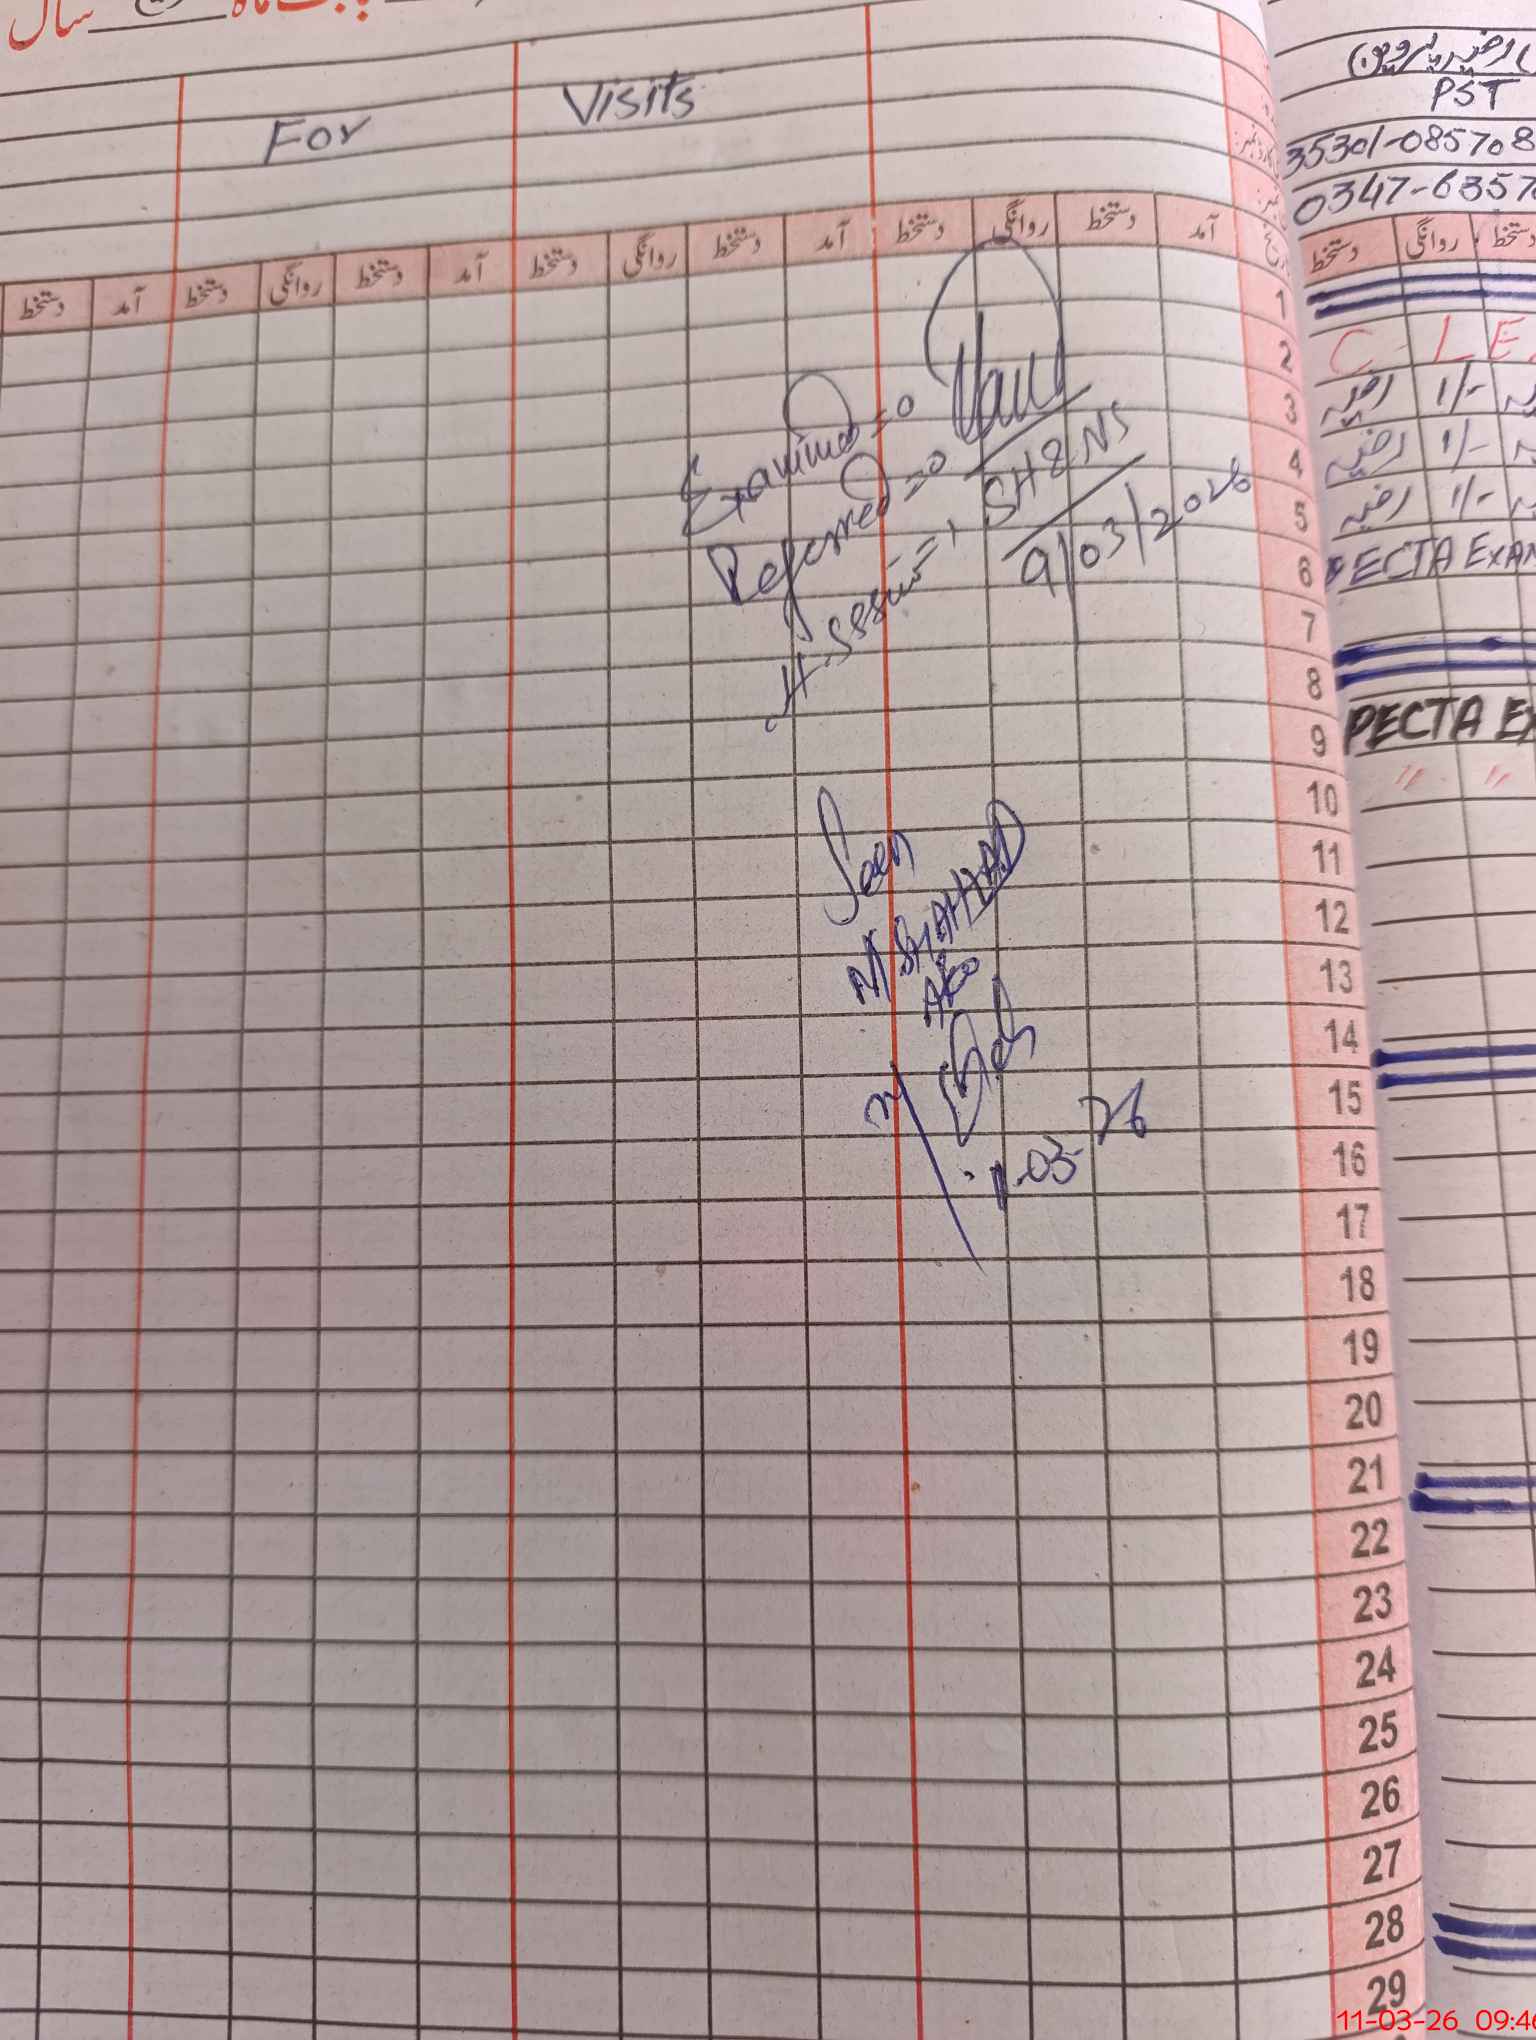 سال بابت ماہ
For Visits
دستخط آمد دستخط روانگی دستخط آمد دستخط روانگی دستخط آمد دستخط روانگی دستخط آمد
Examined = 0
Referred = 0
H. Session = 1
SH&NS
9/03/2026
Seen
M SHAHZAD
AEO
11-03-26
1
2
3
4
5
6
7
8
9
10
11
12
13
14
15
16
17
18
19
20
21
22
23
24
25
26
27
28
29
رضیہ پروین
PST
35301-085708
0347-6357
دستخط روانگی دستخط
C L E
رضیہ 1/-
رضیہ 1/-
رضیہ 1/-
PECTA EXAM
PECTA EX
" "
11-03-26 09:4